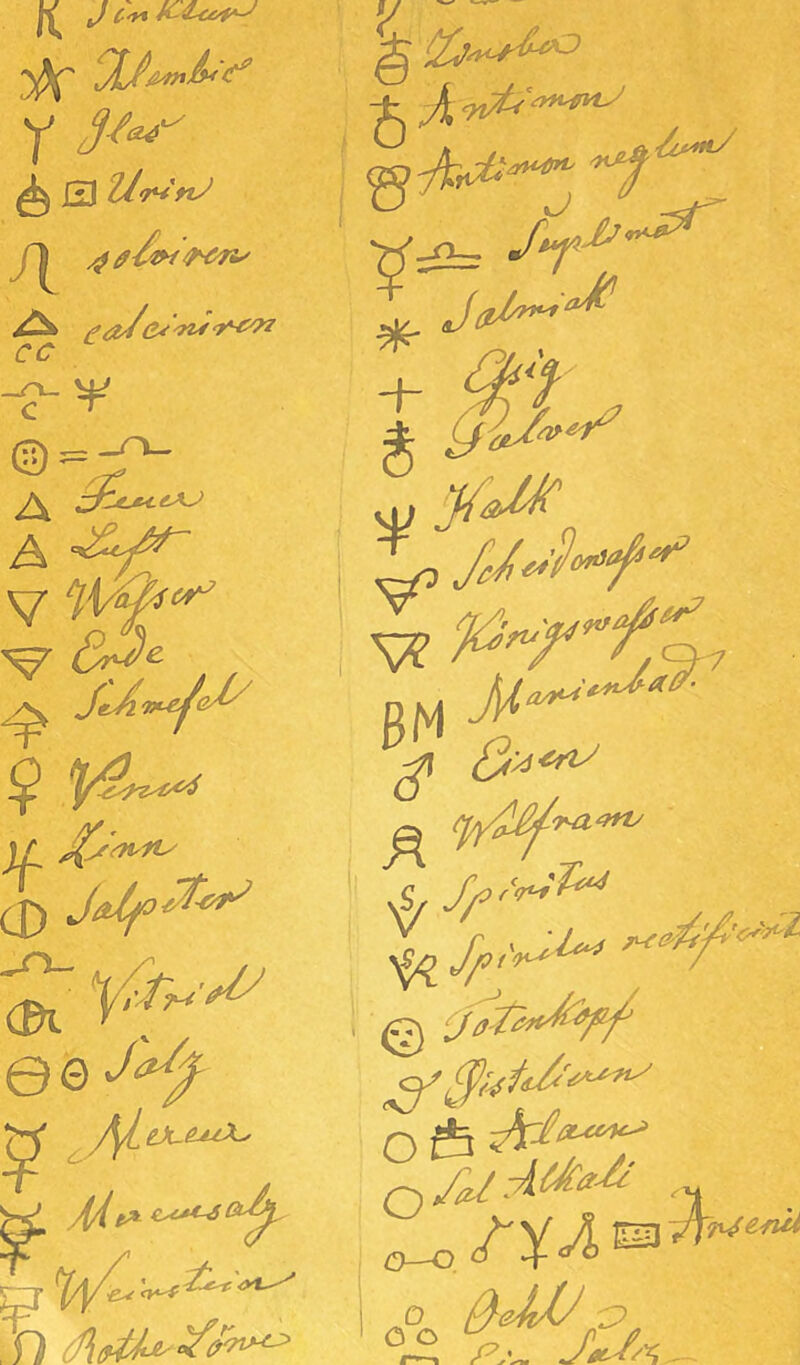 Tinktur
Alembic
Glas
Urin
solviren
calciniren
CC
C
=
Feuer
Luft
Waſser
Erde
Schwefel
Venus
Zinn
Salpeter
Vitriol
Salz
Mercur
Mercursalz
Weinstein
Rothe Löwe
Zinober
Antimon
Antimon
Suplimat
Salmiak
Eſsig
Pulver
Kalk
Scheidewaſser
Königswaſser
BM Marienbad.
Eisen
Wolfram
Spiritus
Spiritus rectificirt
Totenkopf
Distelieren
Alaun
Sal Alkali
Arsenik
Oehl
Ein Salz